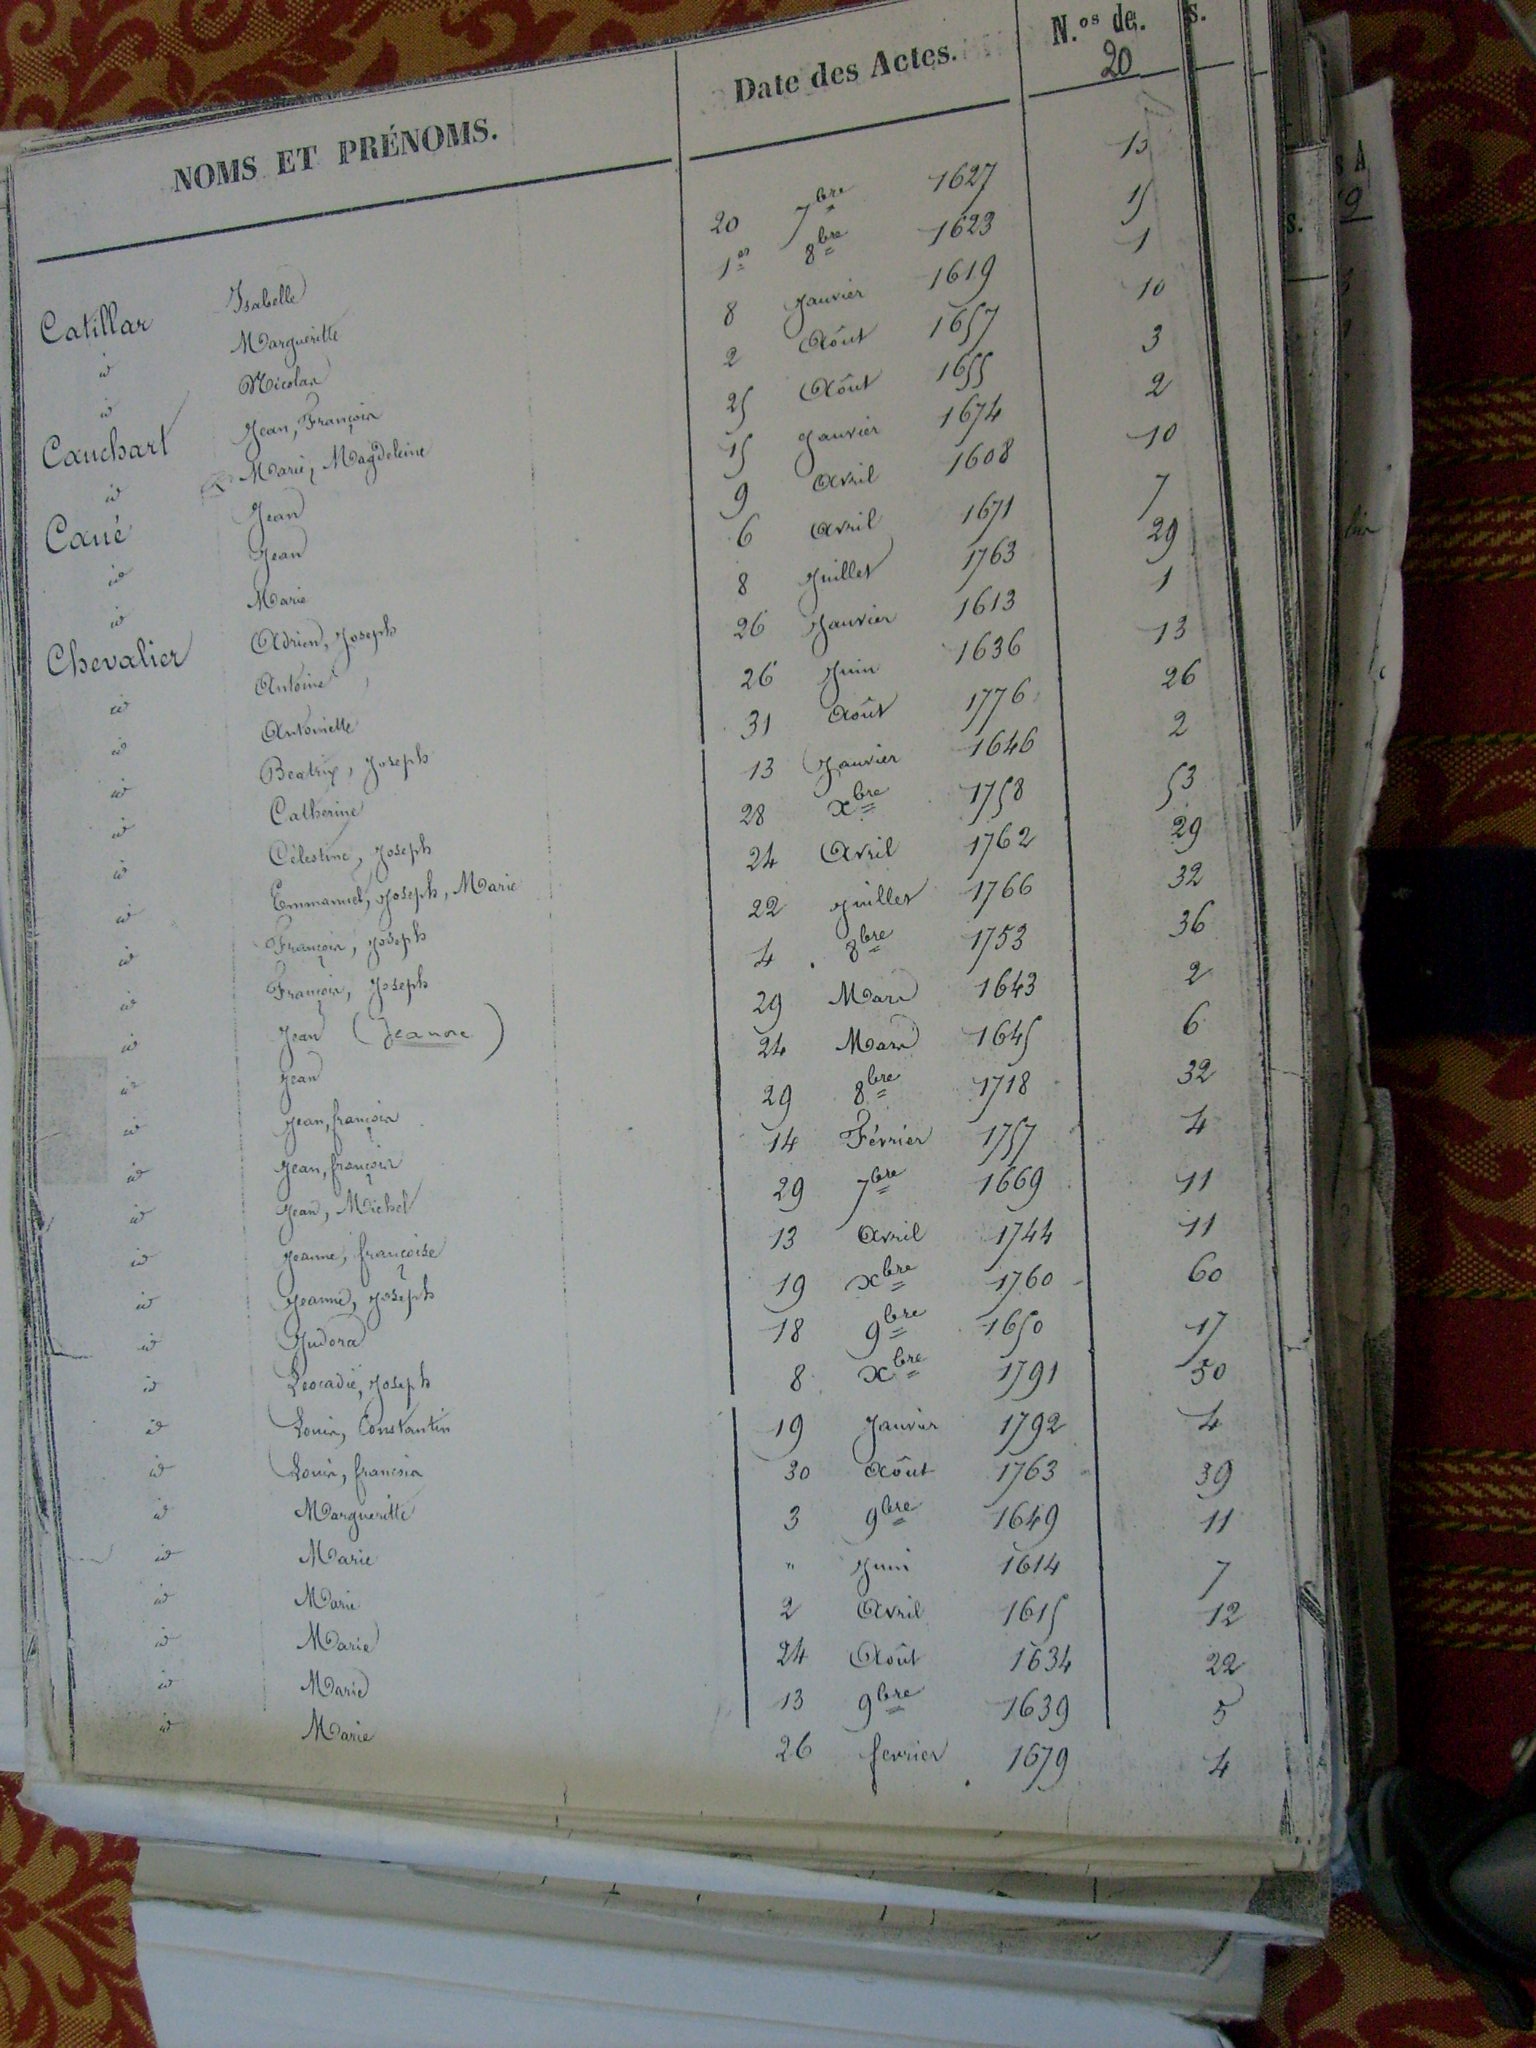 NOMS ET PRÉNOMS. Date des Actes. N.os de. s.
20
Catillar Isabelle 20 7bre 1627 13
id Margueritte 1er 8bre 1623 15
id Nicolas 8 Janvier 1619 1
Cauchart Jean, François 2 Août 1657 10
id Marie, Magdeleine 25 Août 1655 3
Caué Jean 15 Janvier 1674 2
id Jean 9 Avril 1608 10
id Marie 6 Avril 1671 7
Chevalier Adrien, Joseph 8 Juillet 1763 29
id Antoine 26 Janvier 1613 1
id Antoinette 26 Juin 1636 13
id Beatrix, Joseph 31 Août 1776 26
id Catherine 13 Janvier 1646 2
id Célestine, Joseph 28 xbre 1758 53
id Emmanuel, Joseph, Marie 24 Avril 1762 29
id François, Joseph 22 Juillet 1766 32
id François, Joseph 4 8bre 1753 36
id Jean (Jeanne) 29 Mars 1643 2
id Jean 24 Mars 1645 6
id Jean, françois 29 8bre 1718 32
id Jean, françois 14 Février 1757 4
id Jean, Michel 29 7bre 1669 11
id Jeanne, françoise 13 Avril 1744 11
id Jeanne, Joseph 19 xbre 1760 60
id Judora 18 9bre 1650 17
id Léocadie, Joseph 8 xbre 1791 50
id Louis, Constantin 19 Janvier 1792 4
id Louis, francois 30 Août 1763 39
id Margueritte 3 9bre 1649 11
id Marie " Juin 1614 7
id Marie 2 Avril 1615 12
id Marie 24 Août 1634 22
id Marie 13 9bre 1639 5
id Marie 26 fevrier 1679 4